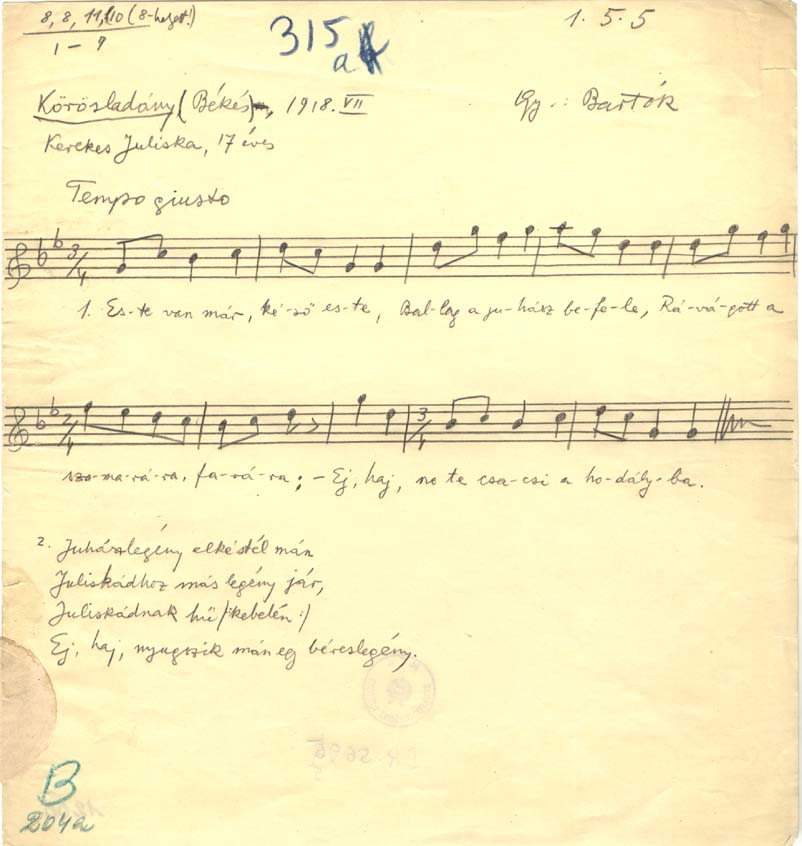 8, 8, 11, 10 (8-helyett!)
1 – 9
315
a
1. 5. 5
Körösladány (Békés), 1918. VII
Gy.: Bartók
Kerekes Juliska, 17 éves
Tempo giusto
3/4
1. Es-te van már, ké-ső es-te, Bal-lag a ju-hász be-fe-le, Rá-vá-gott a
2/4 3/4
szo-ma-rá-ra, fa-rá-ra; – Ej, haj, ne te csa-csi a ho-dály-ba.
2. Juhászlegény elkéstél mán
Juliskádhoz más legény jár,
Juliskádnak hű /: kebelén :/
Ej, haj, nyugszik mán egy béreslegény.
B
204a